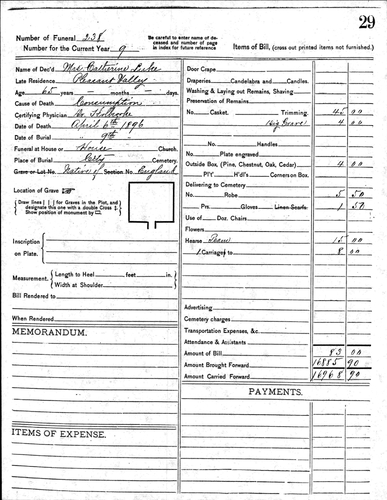 29
Number of Funeral 238
Number for the Current Year 9
Be careful to enter name of deceased and number of page in index for future reference
Items of Bill, (cross out printed items not furnished.)
Name of Dec'd Mrs Catherine
Late Residence Pleasant Valley
Age, 65 years - months - days.
Cause of Death Consumption
Certifying Physician Dr. Holbrooke
Date of Death April 6th 1896
Date of Burial " 9th
Funeral at House or House Church.
Place of Burial City Cemetery.
Grave or Lot No. Native of Section No. England
Location of Grave
Draw lines [ ] for Graves in the Plot, and designate this one with a double Cross
Show position of monument by
Inscription on Plate.
Measurement. Length to Heel feet in.
Width at Shoulder
Bill Rendered to
When Rendered
MEMORANDUM.
ITEMS OF EXPENSE.
Door Crape
Draperies Candelabra and Candles.
Washing & Laying out Remains, Shaving
Preservation of Remains
No. Casket, Trimming. 45 00
Dig Grave 4 00
No. Handles
Plate engraved
Outside Box (Pine, Chestnut, Oak, Cedar) 4 00
P'l'y H'dl's Corners on Box
Delivering to Cemetery
No. Robe 5 50
Prs. Gloves Linen Scarfs 1 50
Use of Doz. Chairs
Flowers
Hearse Team 15 00
1 Carriages to 8 00
Advertising
Cemetery charges
Transportation Expenses, &c.
Attendance & Assistants
Amount of Bill 83 00
Amount Brought Forward 16885 90
Amount Carried Forward 16968 90
PAYMENTS.